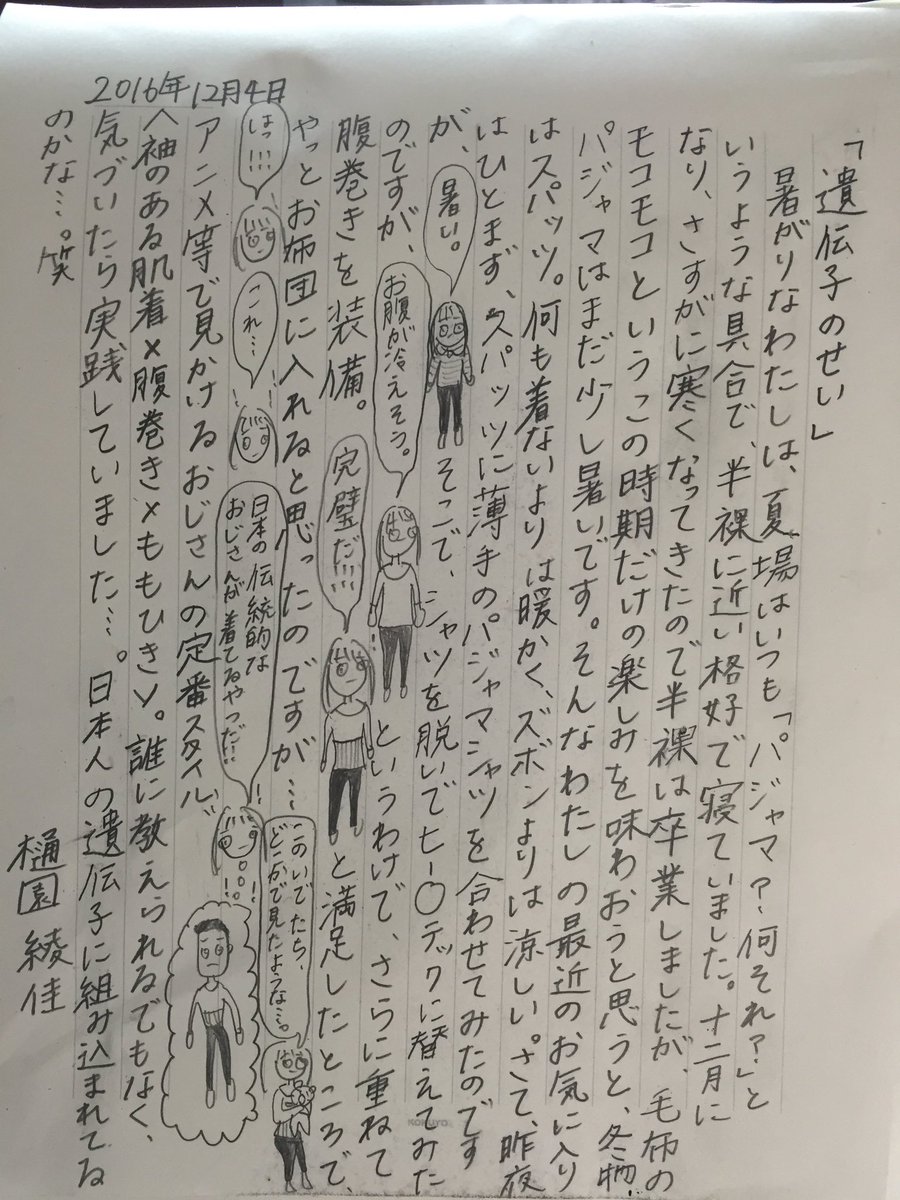 「遺伝子のせい」
暑がりなわたしは、夏場はいつも「パジャマ？何それ？」と
いうような具合で、半裸に近い格好で寝ていました。十二月に
なり、さすがに寒くなってきたので半裸は卒業しましたが、毛布の
モコモコというこの時期だけの楽しみを味わおうと思うと、冬物
パジャマはまだ少し暑いです。そんなわたしの最近のお気に入り
はスパッツ。何も着ないよりは暖かく、ズボンよりは涼しい。さて、昨夜
はひとまず、スパッツに薄手のパジャマシャツを合わせてみたのです
が、
暑い。
そこで、シャツを脱いでヒー〇テックに替えてみた
のですが、
お腹が冷えそう。
というわけで、さらに重ねて
腹巻きを装備。
完璧だ!!!!
と満足したところで、
やっとお布団に入れると思ったのですが…
このいでたち、
どこかで見たような…。
はっ!!!
これ…
日本の伝統的な
おじさんが着てるやつだ!!
アニメ等で見かけるおじさんの定番スタイル、
〈袖のある肌着×腹巻き×ももひき〉。誰に教えられるでもなく、
気づいたら実践していました…。日本人の遺伝子に組み込まれてる
のかな…。笑
2016年12月4日
樋園 綾佳
KOKUYO